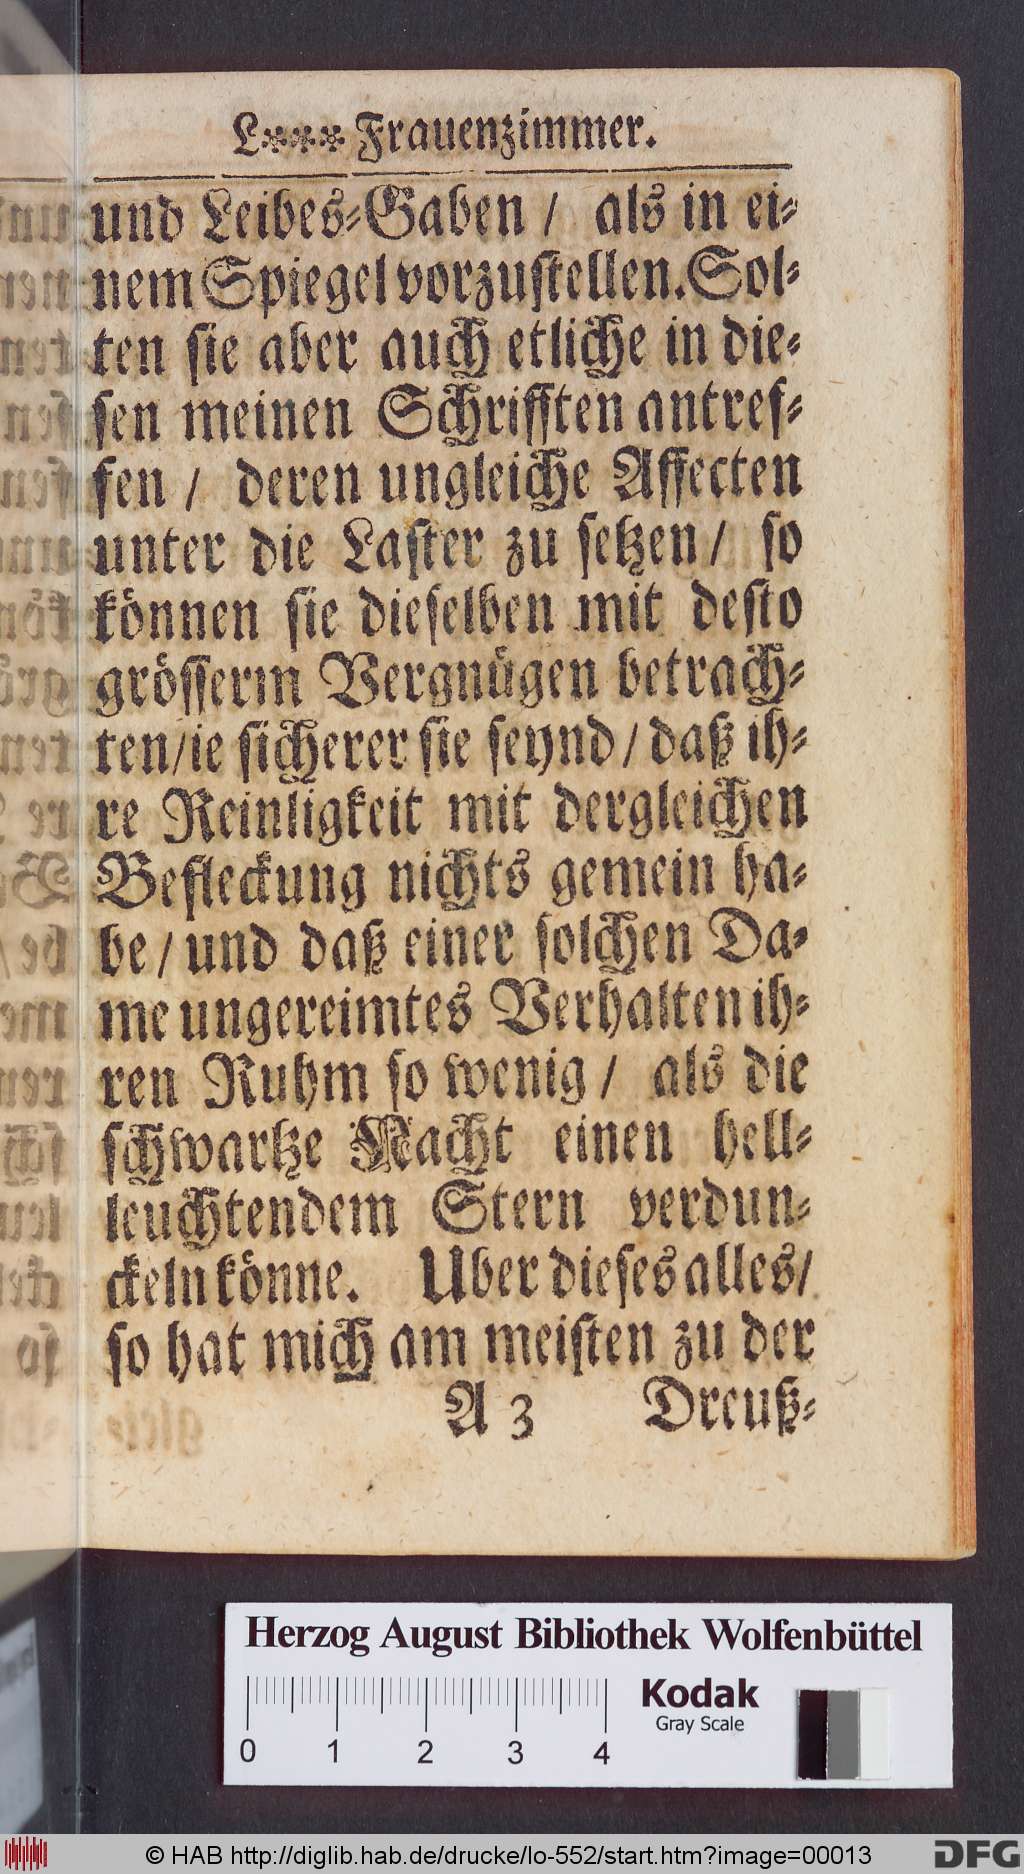 L*** Frauenzimmer.
und Leibes-Gaben / als in ei-
nem Spiegel vorzustellen. Sol-
ten sie aber auch etliche in die-
sen meinen Schrifften antref-
fen / deren ungleiche Affecten
unter die Laster zu setzen / so
können sie dieselben mit desto
grösserm Vergnügen betrach-
ten / ie sicherer sie seynd / daß ih-
re Reinligkeit mit dergleichen
Befleckung nichts gemein ha-
be / und daß einer solchen Da-
me ungereimtes Verhalten ih-
ren Ruhm so wenig / als die
schwartze Nacht einen hell-
leuchtendem Stern verdun-
ckeln könne. Uber dieses alles /
so hat mich am meisten zu der
A 3 Dreuß-
Herzog August Bibliothek Wolfenbüttel
Kodak
Gray Scale
0 1 2 3 4
© HAB http://diglib.hab.de/drucke/lo-552/start.htm?image=00013
DFG